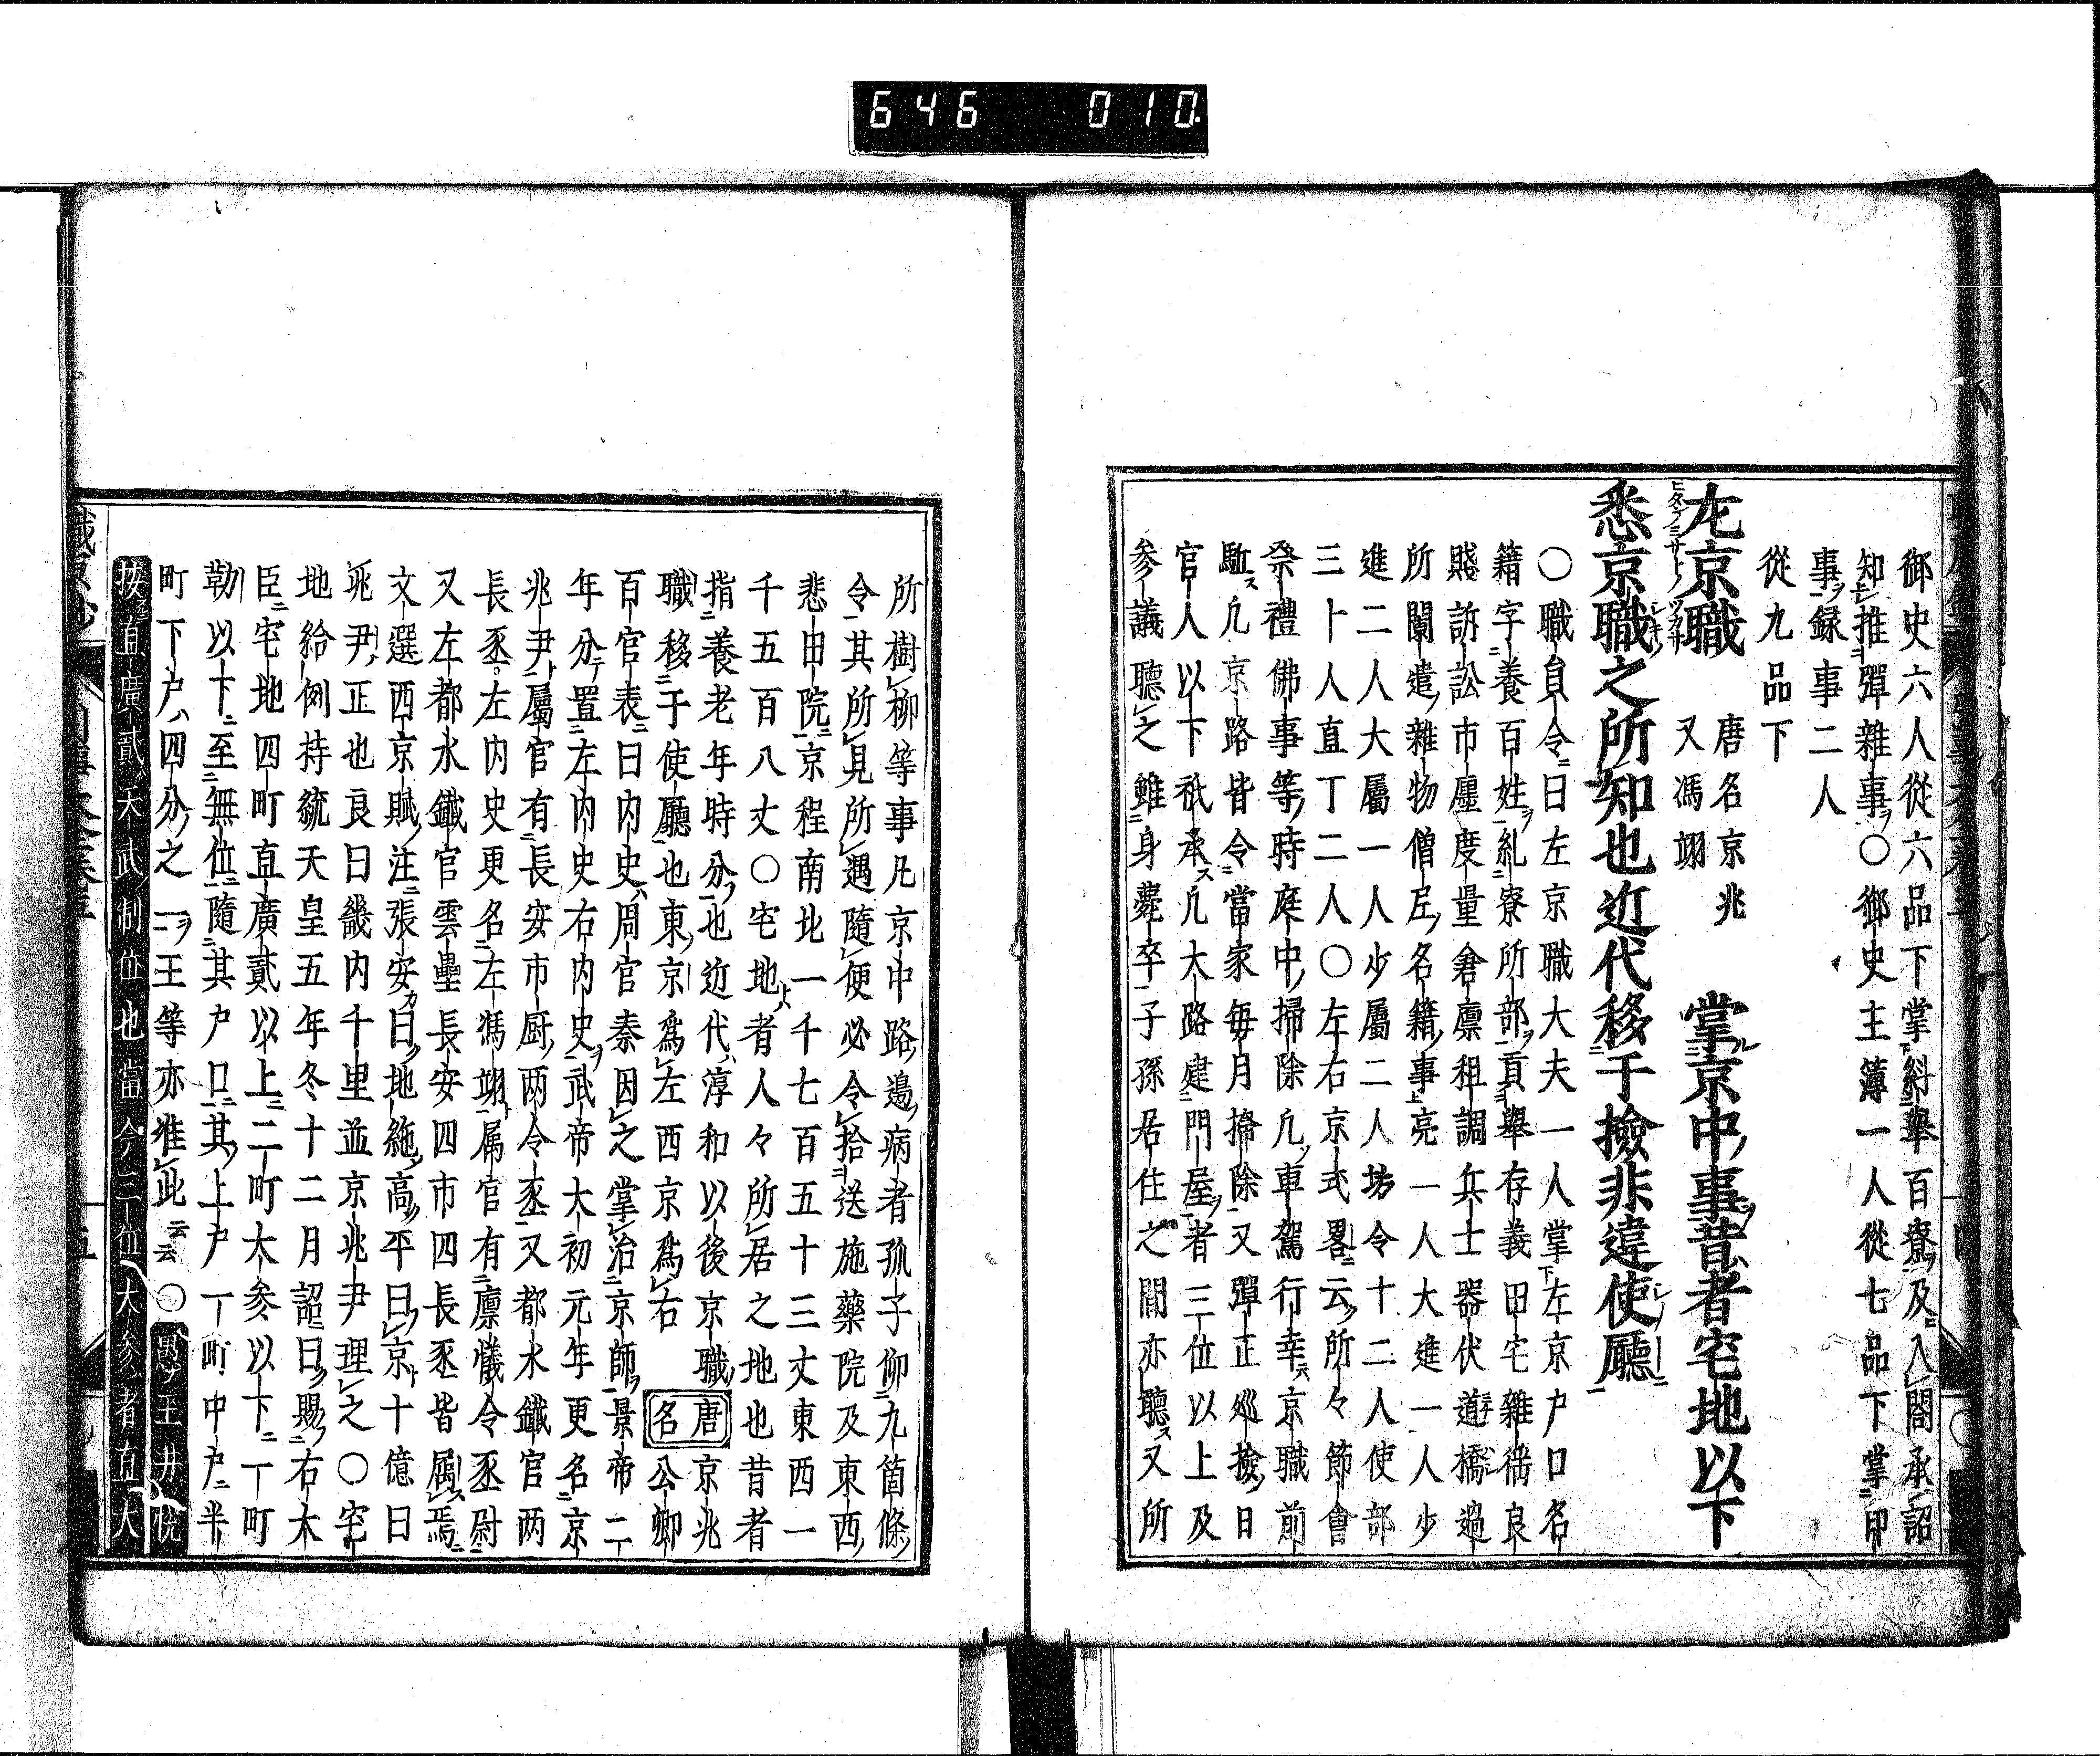 646 010
御史六人從六品下掌糾舉百寮及入閤承詔
知推彈雜事〇御史主簿一人從七品下掌印
事録事二人
從九品下
左京職 唐名京兆 又馮翊 掌京中事昔者宅地以下
悉京職之所知也近代移于撿非違使廳
〇職員令曰左京職大夫一人掌左京戸口名
籍字養百姓糺察所部貢舉存義田宅雜徭良
賤訴訟市廛度量倉廩租調兵士器伏道橋過
所闌遺雜物僧尼名籍事亮一人大進一人少
進二人大屬一人少屬二人坊令十二人使部
三十人直丁二人〇左右京式畧云所々節會
祭禮佛事等時庭中掃除凡車駕行幸京職前
駈凡京路皆令當家毎月掃除又彈正巡撿日
官人以下祇承凡大路建門屋者三位以上及
参議聽之雖身薨卒子孫居住之間亦聽又所
所樹柳等事凡京中路邊病者孤子仰九箇條
令其所見所遇隨便必令拾送施藥院及東西
悲田院京程南北一千七百五十三丈東西一
千五百八丈〇宅地者人々所居之地也昔者
指養老年時分也近代淳和以後京職唐名京兆
職移于使廳也東京爲左西京爲右 公卿
百官表曰内史周官秦因之掌治京師景帝二
年分置左内史右内史武帝太初元年更名京
兆尹屬官有長安市厨两令丞又都水鐵官两
長丞左内史更名左馮翊属官有廩犧令丞尉
又左都水鐵官雲壘長安四市四長丞皆属焉
文選西京賦注張安曰地絁高平曰京十億曰
兆尹正也良曰畿内千里並京兆尹理之〇宅
地給例持統天皇五年冬十二月詔曰賜右大
臣宅地四町直廣貳以上二町大参以下一町
勒以下至無位隨其戸口其上戸一町中戸半
町下戸四分之一王等亦准此云云〇
按直廣貳天武制位也當今三位大参者直大